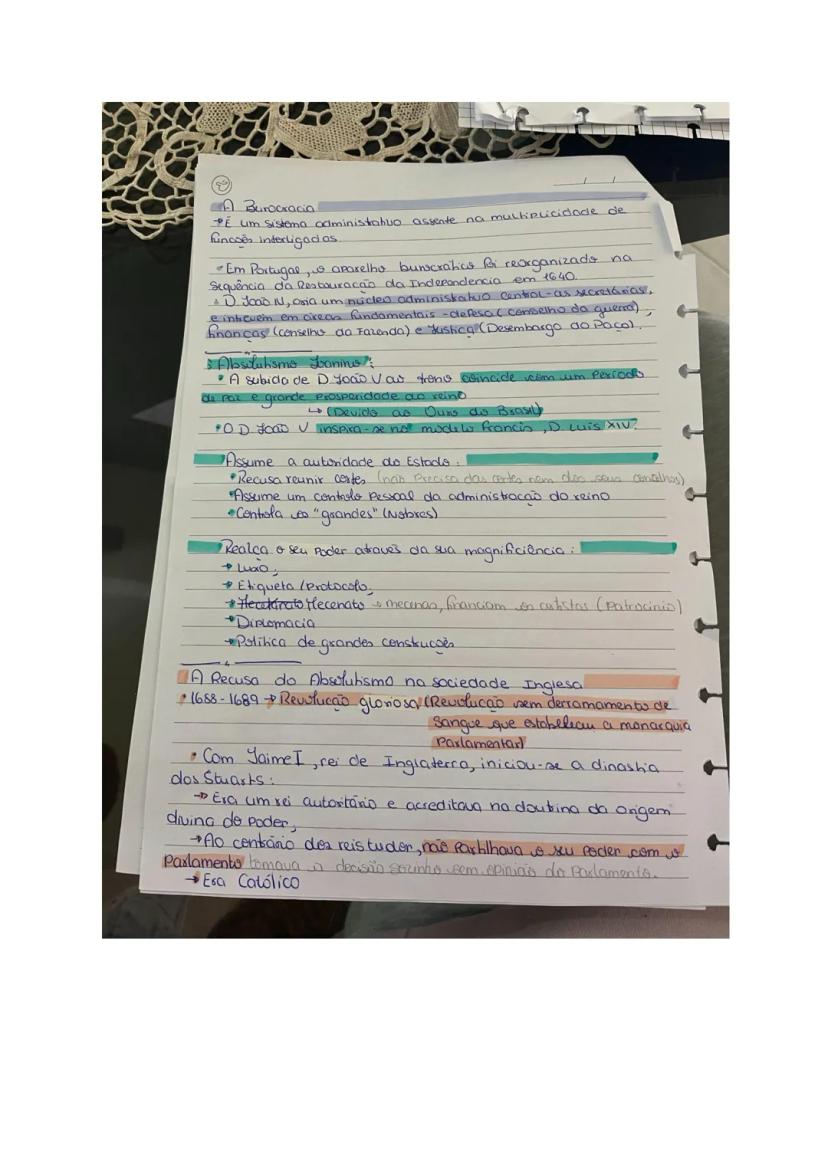 A Burocracia
→ É um sistema administrativo assente na multiplicidade de
funções interligadas.
• Em Portugal, o aparelho burocrático foi reorganizado na
sequência da Restauração da Independencia em 1640.
• D. João IV, cria um núcleo administrativo central - as secretárias,
e intervém em áreas fundamentais - defesa (conselho da guerra),
finanças (conselho da Fazenda) e Justiça (Desembargo do Paço).
Absolutismo Joanino:
• A subida de D. João V ao trono coincide com um Período
de paz e grande prosperidade do reino
↳ (Devido ao Ouro do Brasil)
• O D. João V inspira-se no modelo francis, D. Luis XIV.
Assume a autoridade do Estado:
• Recusa reunir cortes (não Precisa das cortes nem dos seus concelhos)
• Assume um controlo Pessoal da administração do reino
• Controla os "grandes" (Nobres)
Realça o seu Poder através da sua magnificiência:
→ Luxo;
→ Etiqueta / Protocolo;
→ Mecenato → mecenas, financiam os artistas (Patrocinio)
→ Diplomacia
→ Politica de grandes construções
A Recusa do Absolutismo na sociedade Inglesa
• 1688-1689 → Revolução gloriosa (Revolução sem derramamento de
Sangue que estabeleceu a monarquia
Parlamentar)
• Com Jaime I, rei de Inglaterra, iniciou-se a dinastia
dos Stuarts:
→ Era um rei autoritário e acreditava na doutrina da origem
divina do Poder;
→ Ao contrário dos reis tudor, não Partilhava o seu Poder com o
Parlamento tomava a decisão sozinho sem opinião do Parlamento.
→ Era Católico